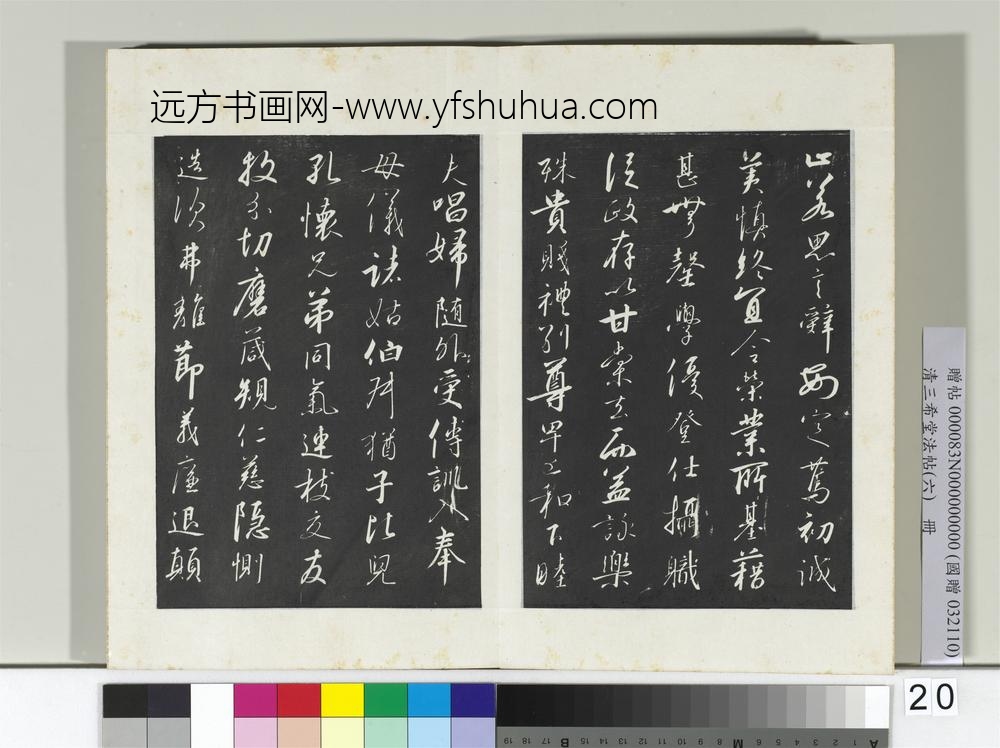 远方书画网-www.yfshuhua.com
止若思言辭安定篤初誠
美慎終宜令榮業所基藉
甚無罄學優登仕攝職
從政存以甘棠去而益詠樂
殊貴賤禮別尊卑上和下睦
夫唱婦隨外受傅訓入奉
母儀諸姑伯叔猶子比兒
孔懷兄弟同氣連枝交友
投分切磨箴規仁慈隱惻
造次弗離節義廉退顛
贈帖 000083N000000000 (國贈 032110)
清三希堂法帖(六) 冊
20
19 18 17 16 15 B 12 11 10 9 8 7 M 6 5 4 3 2 1 A